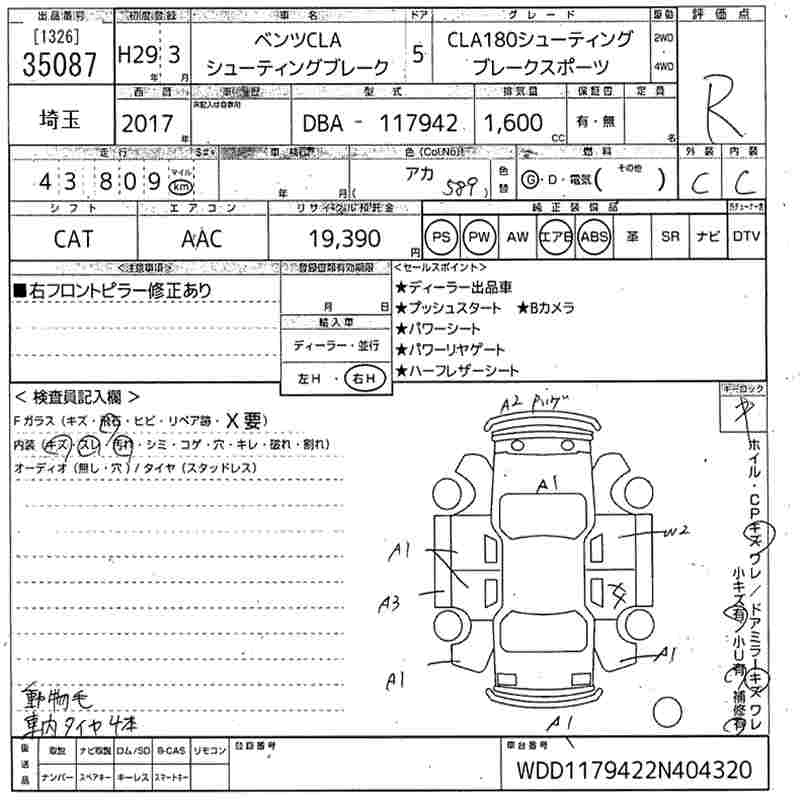 出品番号 初度登録 車名 ドア グレード 車歴 評価点
[1326] 35087 H29年 3月 ベンツCLA シューティングブレーク 5 CLA180シューティング ブレークスポーツ 2WD 4WD R
埼玉 西暦 2017年 車歴 未記入は自家用 型式 DBA - 117942 排気量 1,600CC 保証書 有・無 定員 名
走行 43809 マイル km 車検 年 月 色(Col.No) アカ 589 色替 燃料 G・D・電気( その他 ) 外装 C 内装 C
シフト エアコン リサイクル預託金 純正装備品
CAT AAC 19,390円 PS PW AW エアB ABS 革 SR ナビ DTV
<注意事項> 登録書類有効期限 <セールスポイント>
■右フロントピラー修正あり
月 日
輸入車
ディーラー・並行
左H ・ 右H
★ディーラー出品車
★プッシュスタート ★Bカメラ
★パワーシート
★パワーリヤゲート
★ハーフレザーシート
< 検査員記入欄 >
Fガラス(キズ・飛石・ヒビ・リペア跡・X要)
内装(キズ・スレ・汚れ・シミ・コゲ・穴・キレ・破れ・割れ)
オーディオ(無し・穴)/タイヤ(スタッドレス)
動物毛
車内タイヤ4本
A2
A1
A1
W2
A3
XX
A1
A1
A1
キーロック
ホイル・CPキズワレ/ドアミラーキズワレ
小キズ有/小U有/補修有
後送品 取説 ナビ取説 ROM/SD B-CAS リモコン
ナンバー スペアキー キーレス スマートキー
登録番号
車台番号
WDD1179422N404320